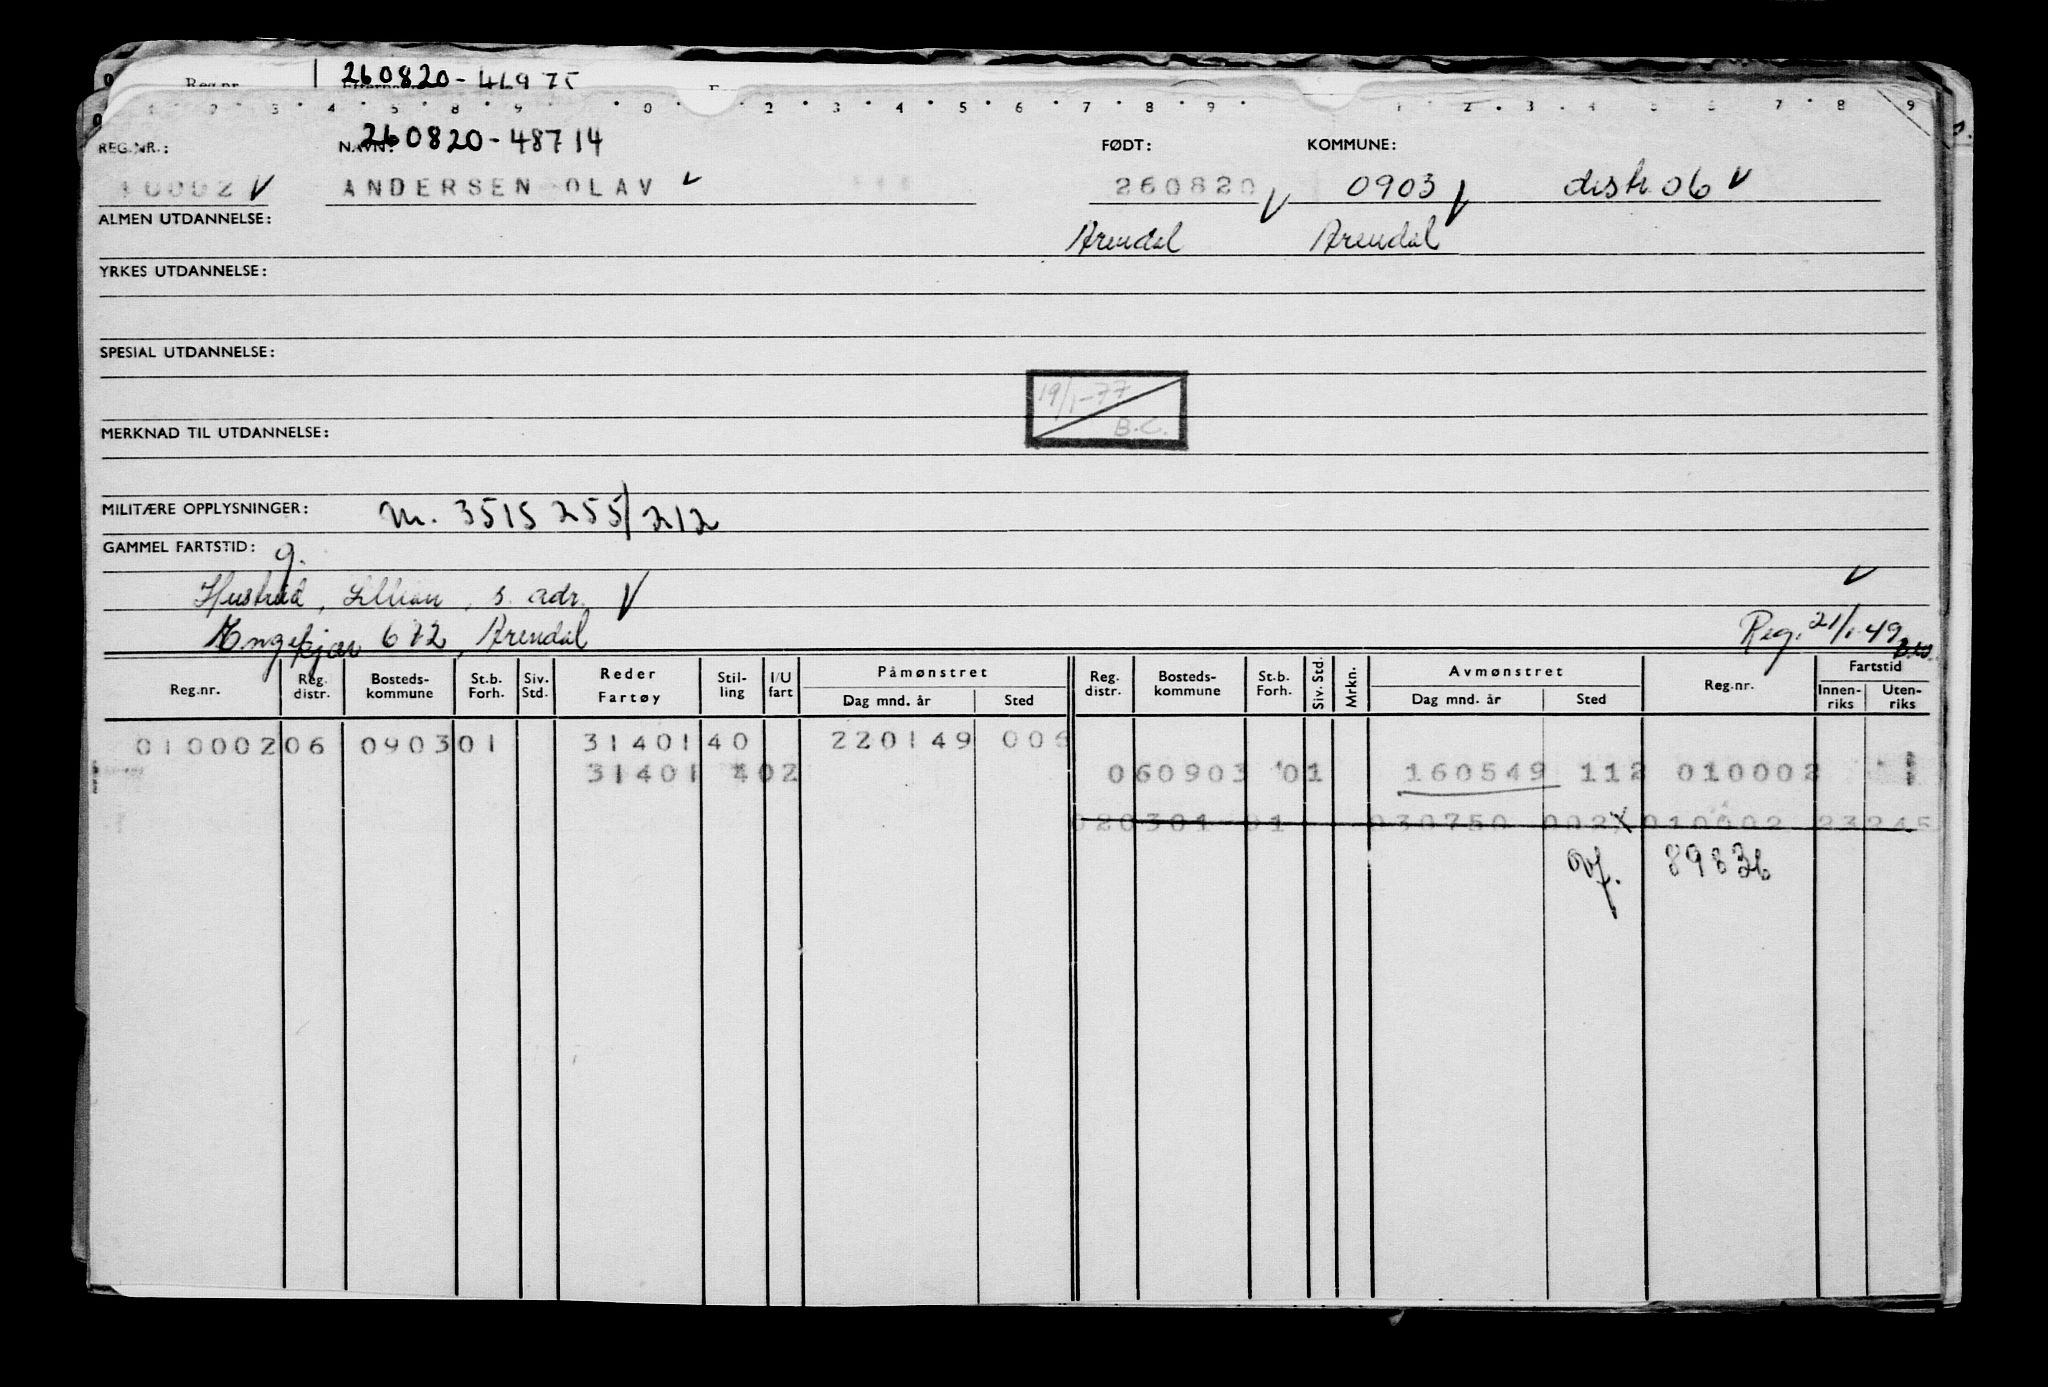 Reg.nr. 260820-46975
REG.NR.: NAVN: 260820-48714 FØDT: KOMMUNE:
10002 ✓ ANDERSEN OLAV ✓ 260820 ✓ 0903 ✓ distr 06 ✓
ALMEN UTDANNELSE: Arendal Arendal
YRKES UTDANNELSE:
SPESIAL UTDANNELSE:
19/1-77
B.C.
MERKNAD TIL UTDANNELSE:
MILITÆRE OPPLYSNINGER: M. 3515 255/212
GAMMEL FARTSTID: g.
Hustru, Lillian, s. adr. ✓
672, Arendal Reg. 21/1-49
Reg.nr. Reg. distr. Bosteds-kommune St.b. Forh. Siv. Std. Reder Fartøy Stil-ling I/U fart Påmønstret Dag mnd. år Sted Reg. distr. Bosteds-kommune St.b. Forh. Siv. Std. Mrkn. Avmønstret Dag mnd. år Sted Reg.nr. Fartstid Innen-riks Uten-riks
010002 06 0903 01 31401 40 220149 006
31401 402 060903 01 160549 112 010002
020301 01 030750 002 010002 23 245
89836